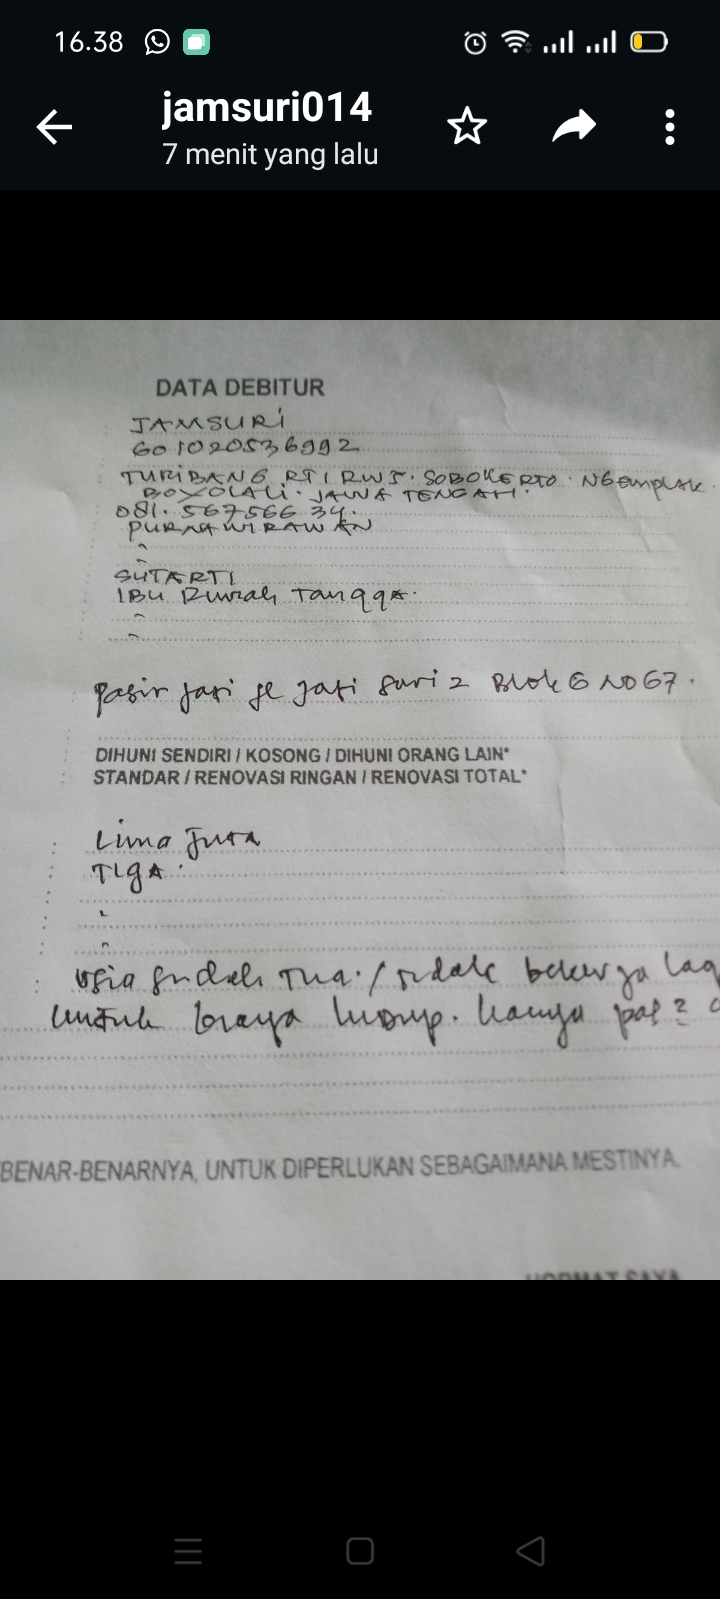 16.38
jamsuri014
7 menit yang lalu
DATA DEBITUR
JAMSURI
601020536992
TURIBANG RT1 RW5. SOBOKERTO. NGEMPLAK.
BOYOLALI. JAWA TENGAH.
081. 567566 34.
PURNAWIRAWAN
SUTARTI
IBU Rumah Tangga.
pasir jati jati sari 2 Blok G NO 67.
DIHUNI SENDIRI / KOSONG / DIHUNI ORANG LAIN*
STANDAR / RENOVASI RINGAN / RENOVASI TOTAL*
Lima Juta
TIGA.
usia sudah Tua. / tidak bekerja lag
untuk biaya hidup. hanya pas2
BENAR-BENARNYA, UNTUK DIPERLUKAN SEBAGAIMANA MESTINYA.
HORMAT SAYA